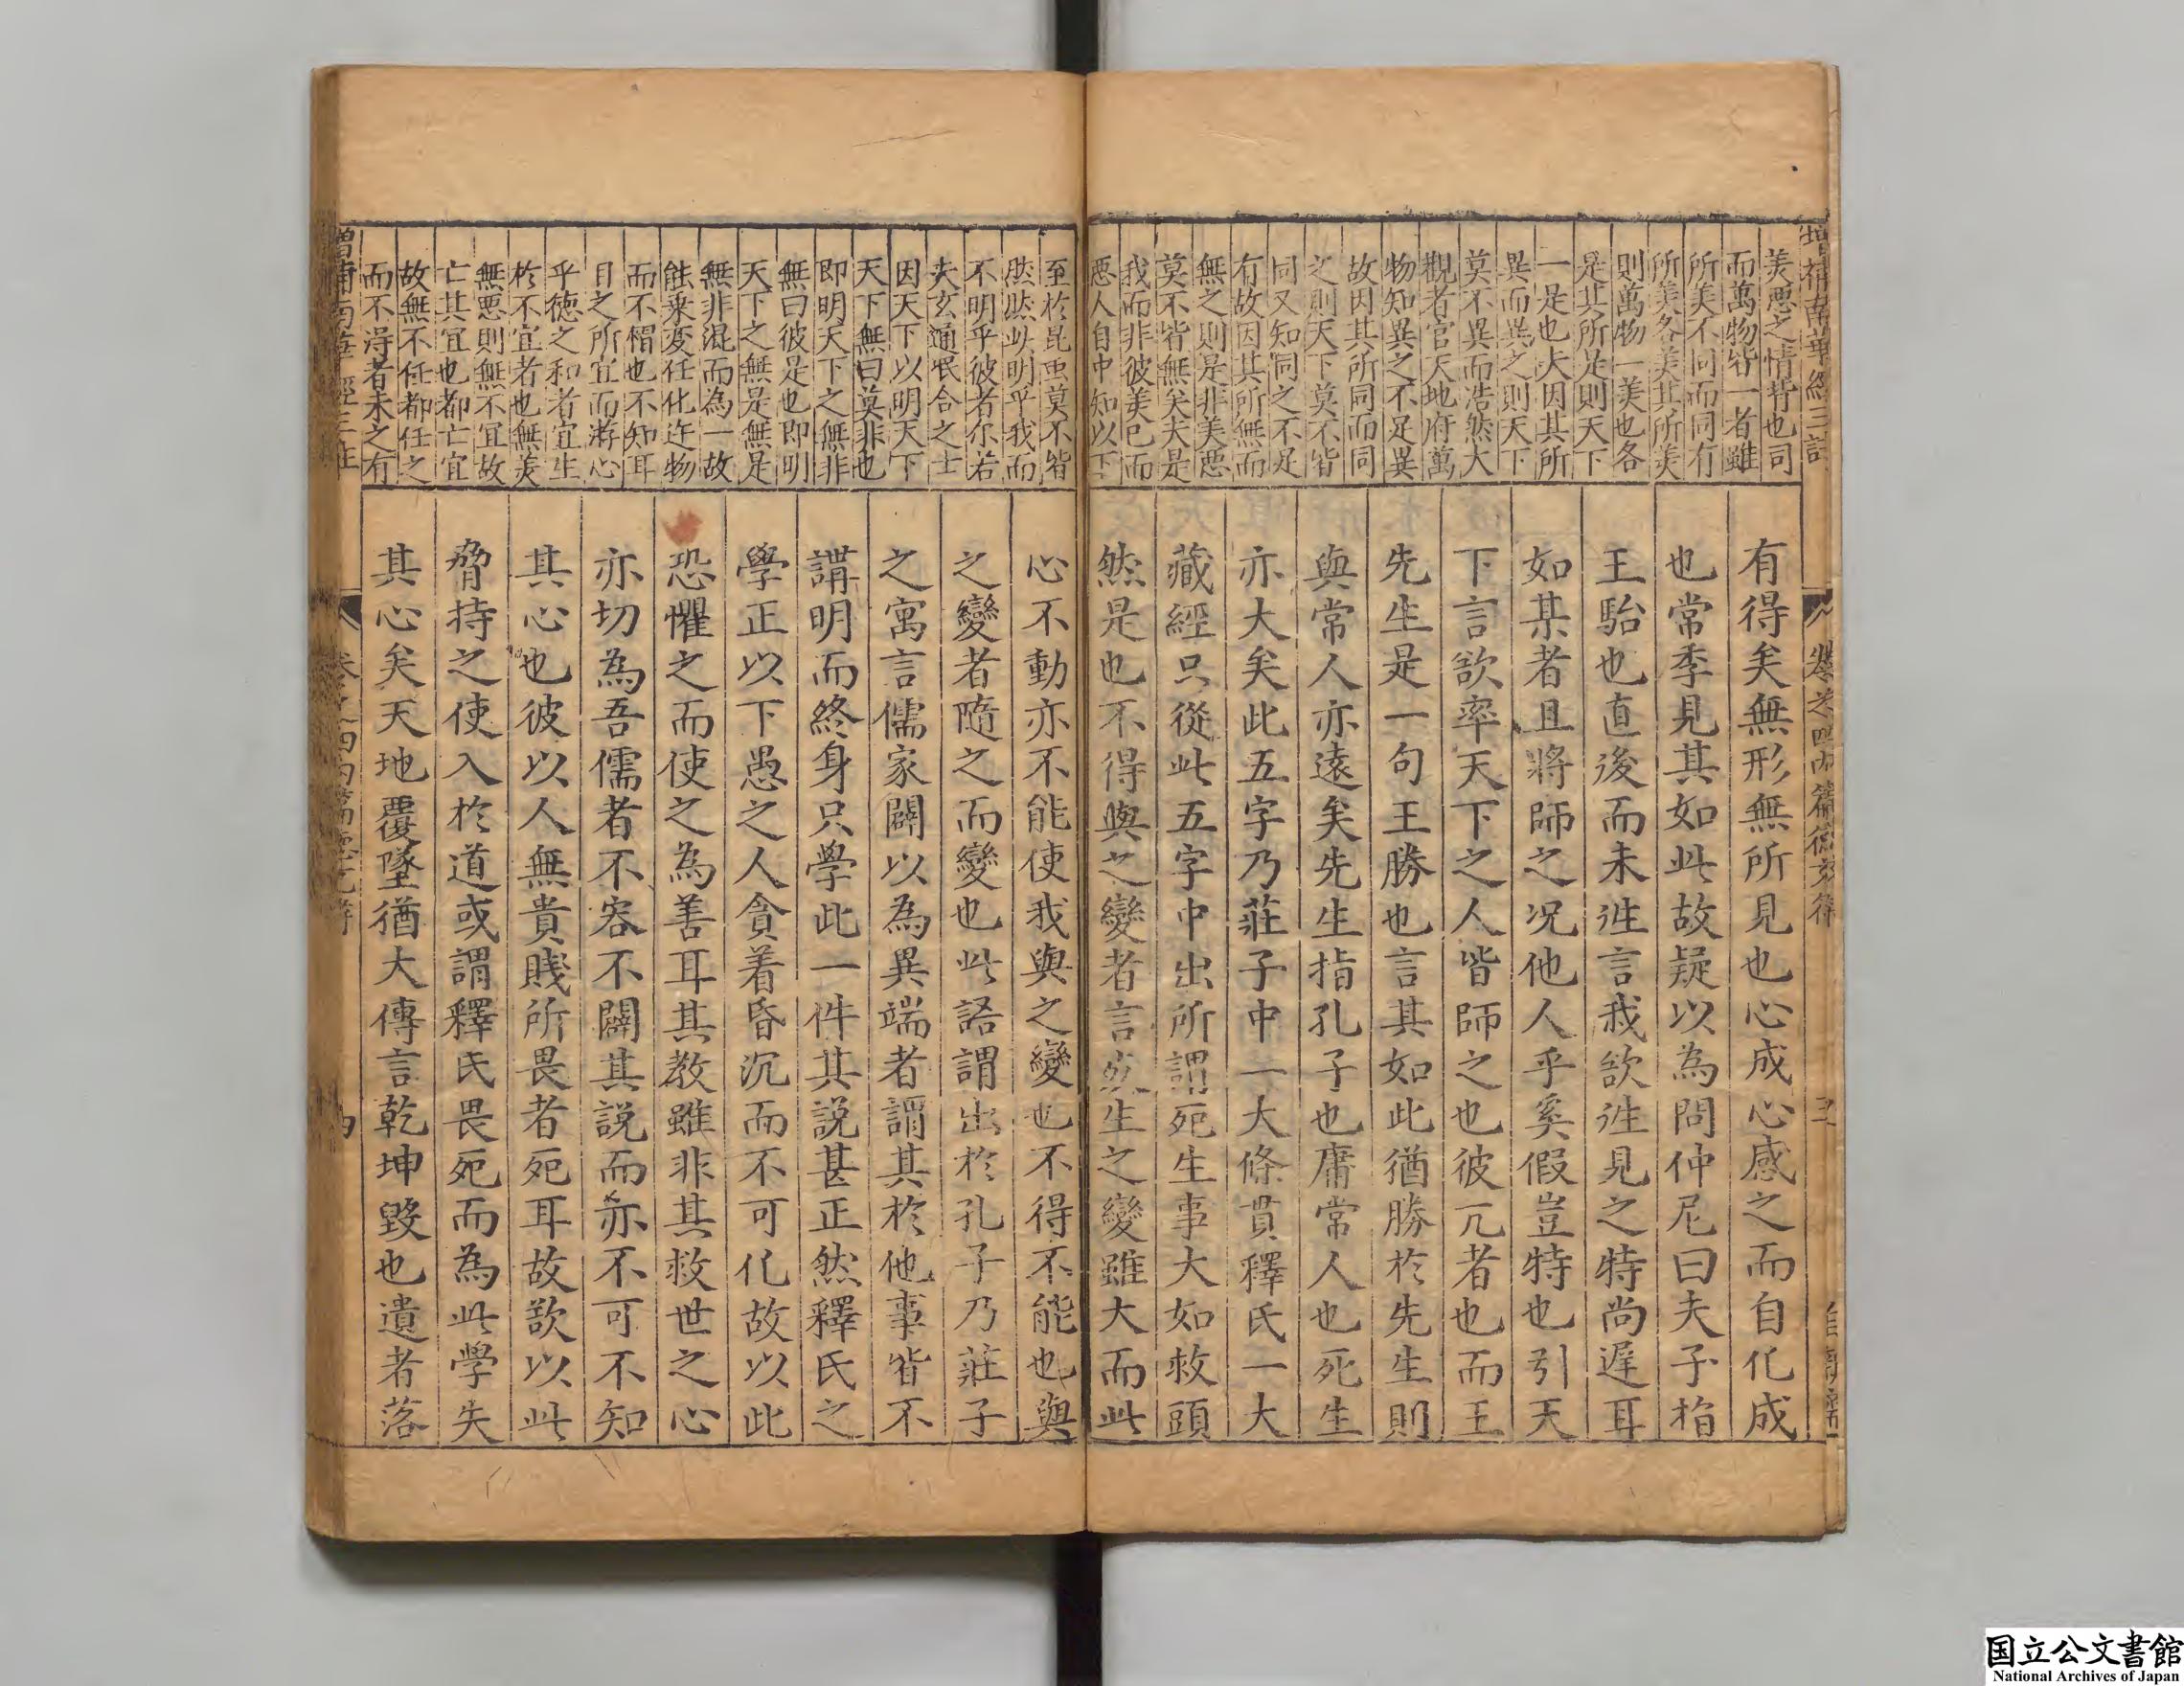 美惡之情背也司
而萬物皆一者雖
所美不同而同有
所美各美其所美
則萬物一美也各
是其所是則天下
一是也夫因其所
異而異之則天下
莫不異而浩然大
觀者官天地府萬
物知異之不足異
故因其所同而同
之則天下莫不皆
同又知同之不足
有故因其所無而
無之則是非美惡
莫不皆無矣夫是
我而非彼美已而
惡人自中知以下
有得矣無形無所見也心成心感之而自化成
也常季見其如此故疑以為問仲尼曰夫子指
王駘也直後而未往言我欲往見之特尚遲耳
如某者且將師之况他人乎奚假豈特也引天
下言欲率天下之人皆師之也彼兀者也而王
先生是一句王勝也言其如此猶勝於先生則
與常人亦遠矣先生指孔子也庸常人也死生
亦大矣此五字乃莊子中一大條貫釋氏一大
藏經只從此五字中出所謂死生事大如救頭
然是也不得與之變者言死生之變雖大而此
至於昆虫莫不皆
然然此明乎我而
不明乎彼者尔若
夫玄通泯合之士
因天下以明天下
天下無曰莫非也
即明天下之無非
無曰彼是也即明
天下之無是無是
無非混而為一故
能乘変任化迕物
而不慴也不知耳
目之所宜而游心
乎德之和者宜生
於不宜者也無美
無惡則無不宜故
亡其宜也都亡宜
故無不任都任之
而不得者未之有
心不動亦不能使我與之變也不得不能也與
之變者隨之而變也此語謂出於孔子乃莊子
之寓言儒家闢以為異端者謂其於他事皆不
講明而終身只學此一件其說甚正然釋氏之
學正以下愚之人貪着昏沉而不可化故以此
恐懼之而使之為善耳其教雖非其救世之心
亦切為吾儒者不容不闢其說而亦不可不知
其心也彼以人無貴賤所畏者死耳故欲以此
脅持之使入於道或謂釋氏畏死而為此學失
其心矣天地覆墜猶大傳言乾坤毀也遺者落
国立公文書館
National Archives of Japan